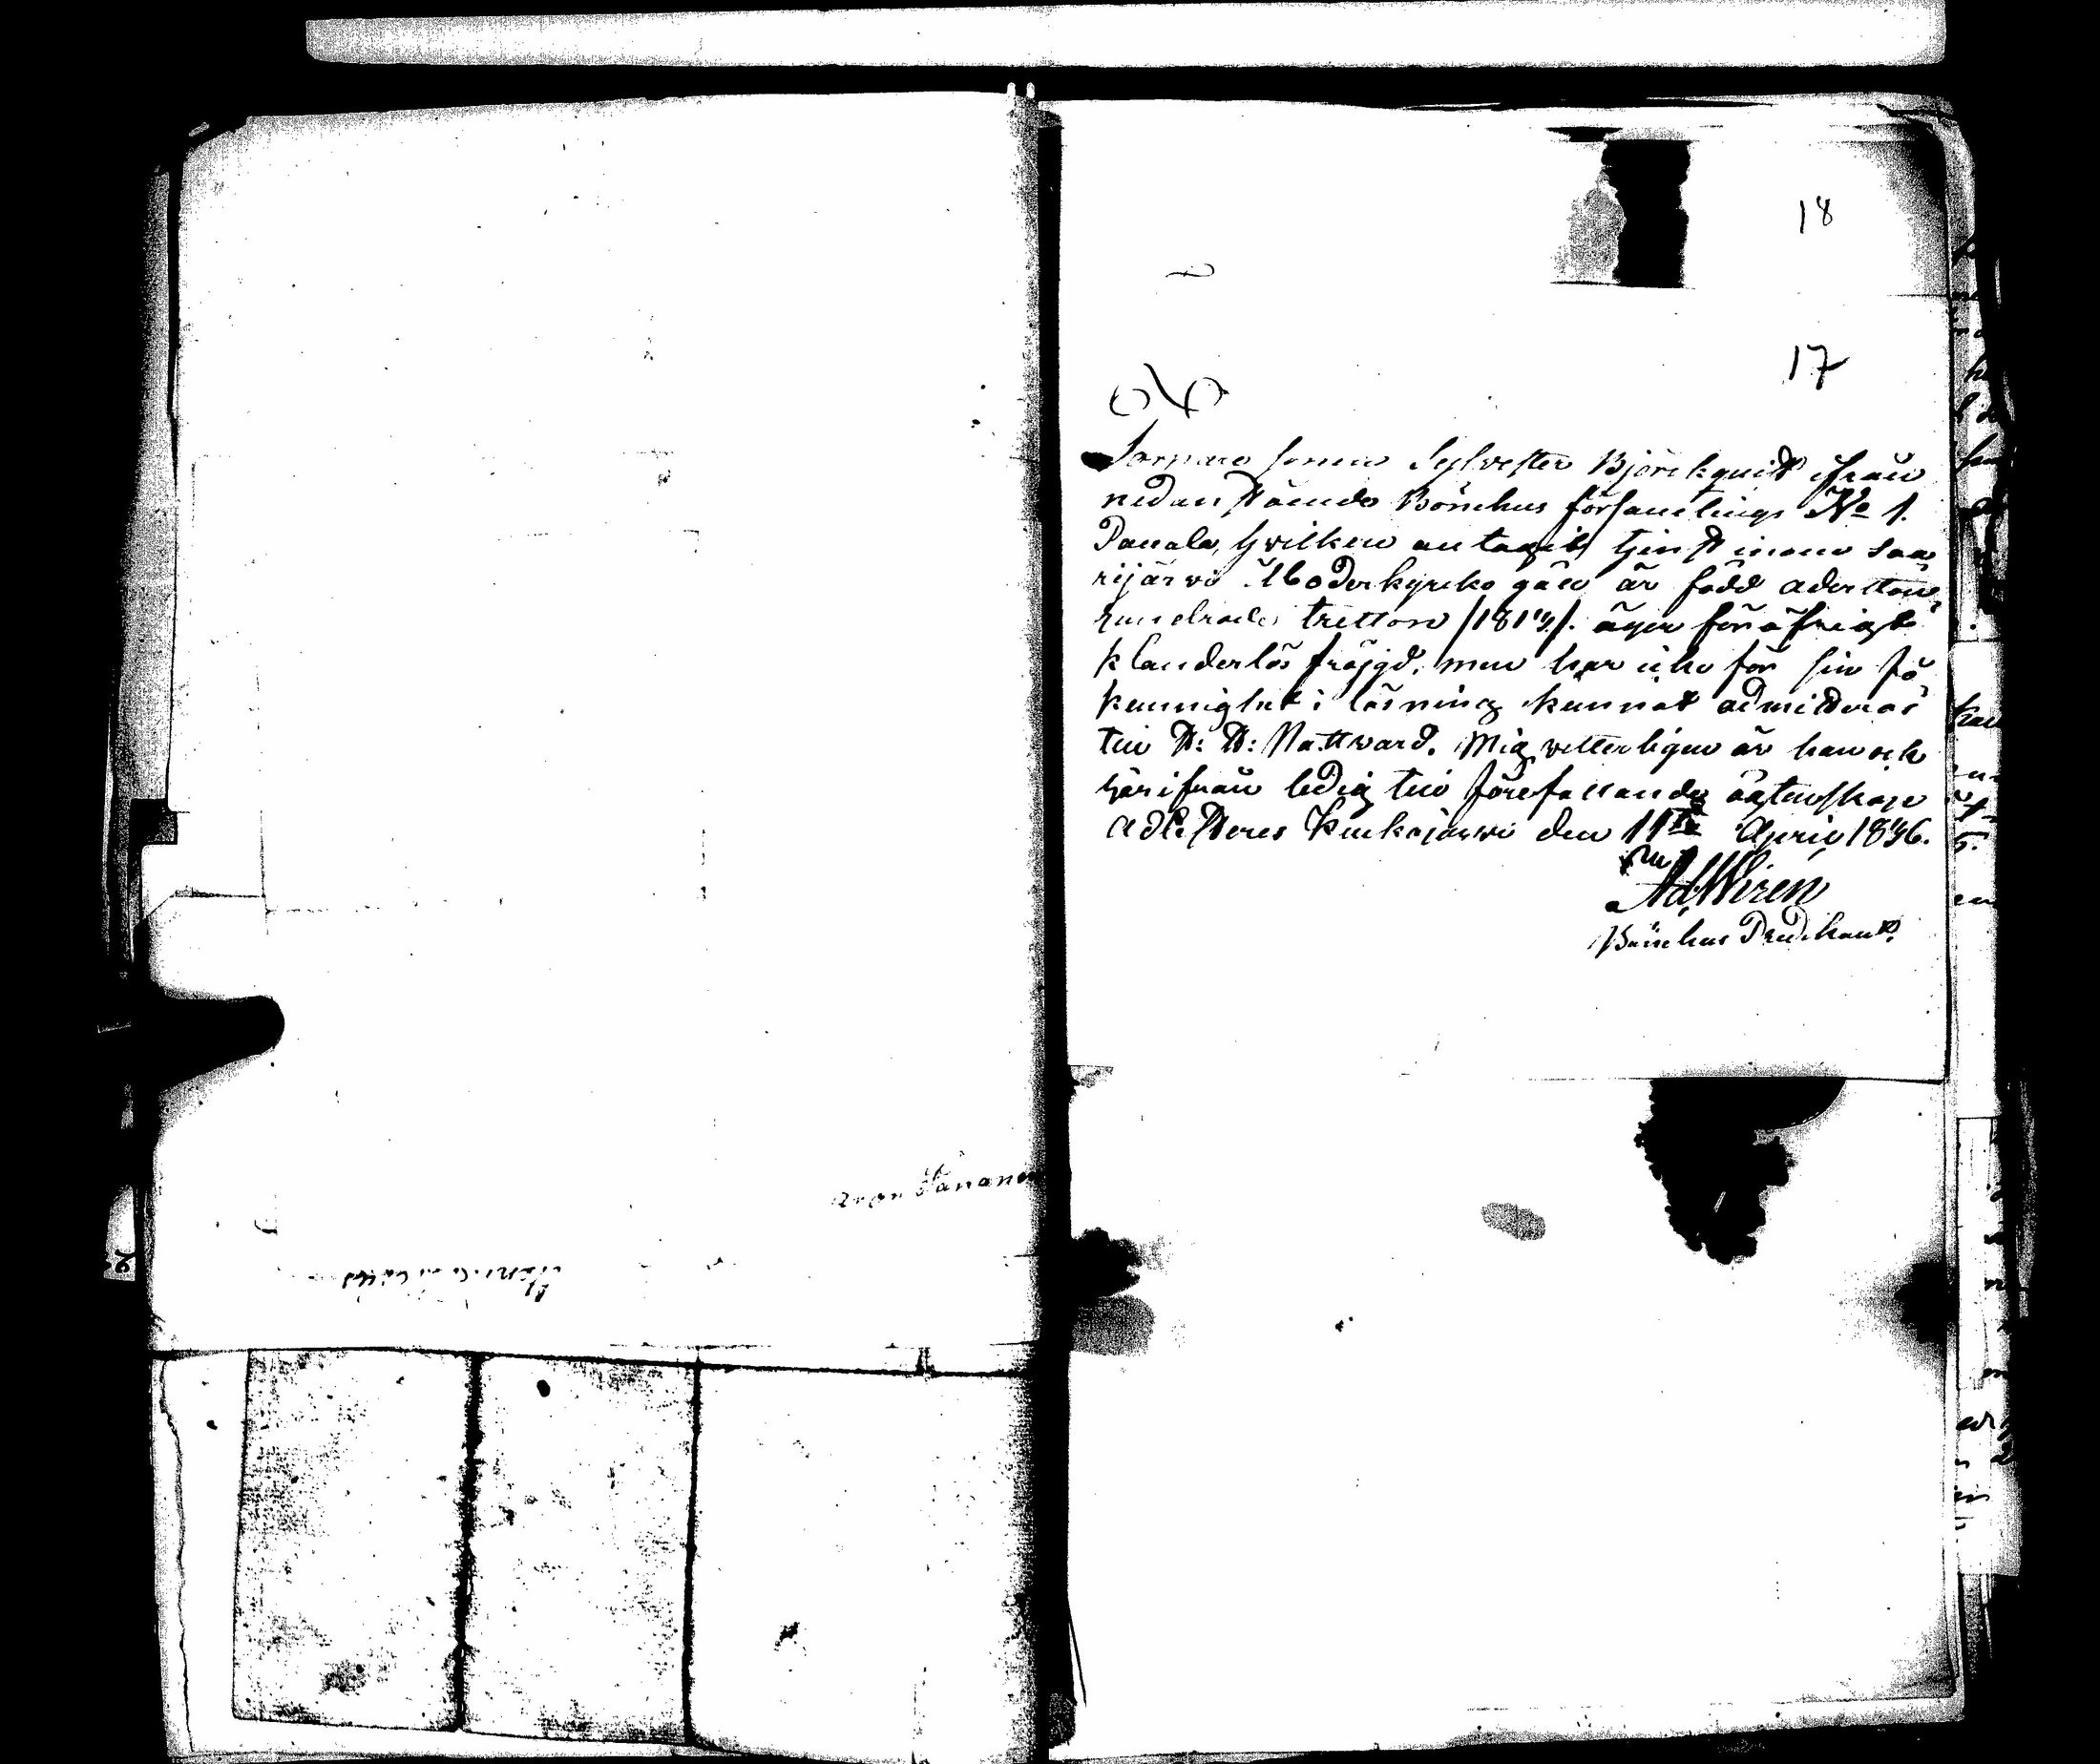 18
17
Torpare sonen Sylvester Björckquist ifrån
nedanstående Bönehus församlings No 1.
Panala, hvilken antagit tjenst inom Saa-
rijärvi Moderkyrko gäll är född adertton-
hundrade tretton /1813/. äger för öfrigt
klanderlös fräjgd, men har icke för sin få-
kunnighet i läsning kunnat admitteras
till H: H: Nattvard. Mig vetterligen är han ock
härifrån ledig till förefallande ägtenskap
adtesteres Kuckajärvi den 11te April 1836.
Ad. Wiren
Bönehus Predikant.